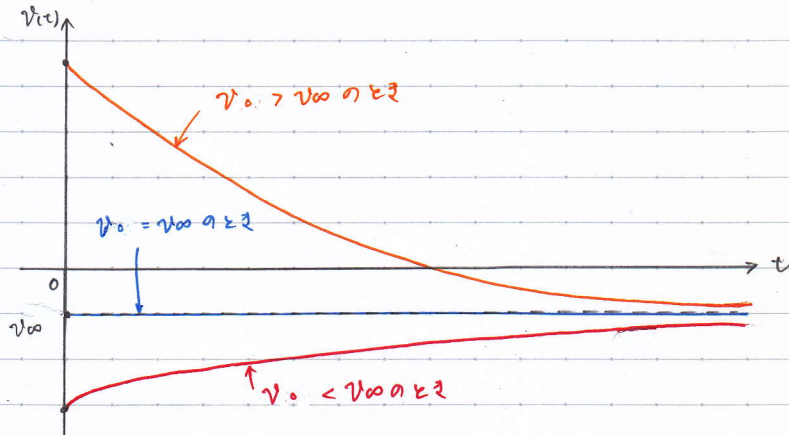 v(t)
v₀ > v∞ のとき
v₀ = v∞ のとき
0
t
v∞
v₀ < v∞ のとき